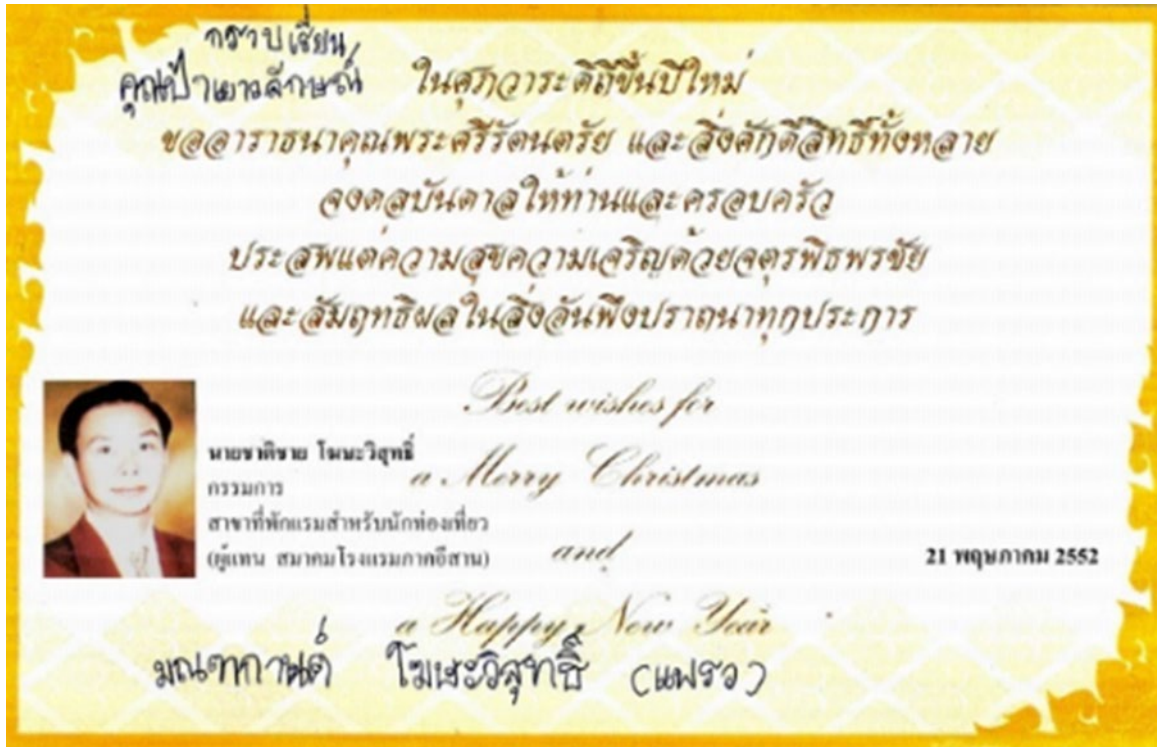 กราบเรียน
คุณป้าเยาวลักษณ์
ในศุภวาระดิถีขึ้นปีใหม่
ขออาราธนาคุณพระศรีรัตนตรัย และสิ่งศักดิ์สิทธิ์ทั้งหลาย
จงดลบันดาลให้ท่านและครอบครัว
ประสพแต่ความสุขความเจริญด้วยจตุรพิธพรชัย
และสัมฤทธิผลในสิ่งอันพึงปราถนาทุกประการ
Best wishes for
a Merry Christmas
and
a Happy New Year
นายชาติชาย โฆษะวิสุทธิ์
กรรมการ
สาขาที่พักแรมสำหรับนักท่องเที่ยว
(ผู้แทน สมาคมโรงแรมภาคอีสาน)
21 พฤษภาคม 2552
มณฑกานต์ โฆษะวิสุทธิ์ (แพรว)